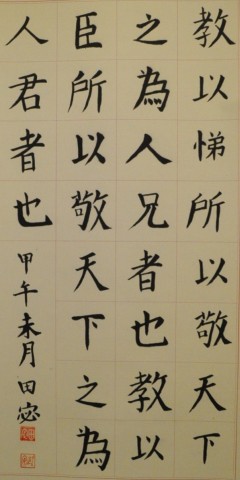 教以悌所以敬天下
之為人兄者也教以
臣所以敬天下之為
人君者也
甲午未月田宓